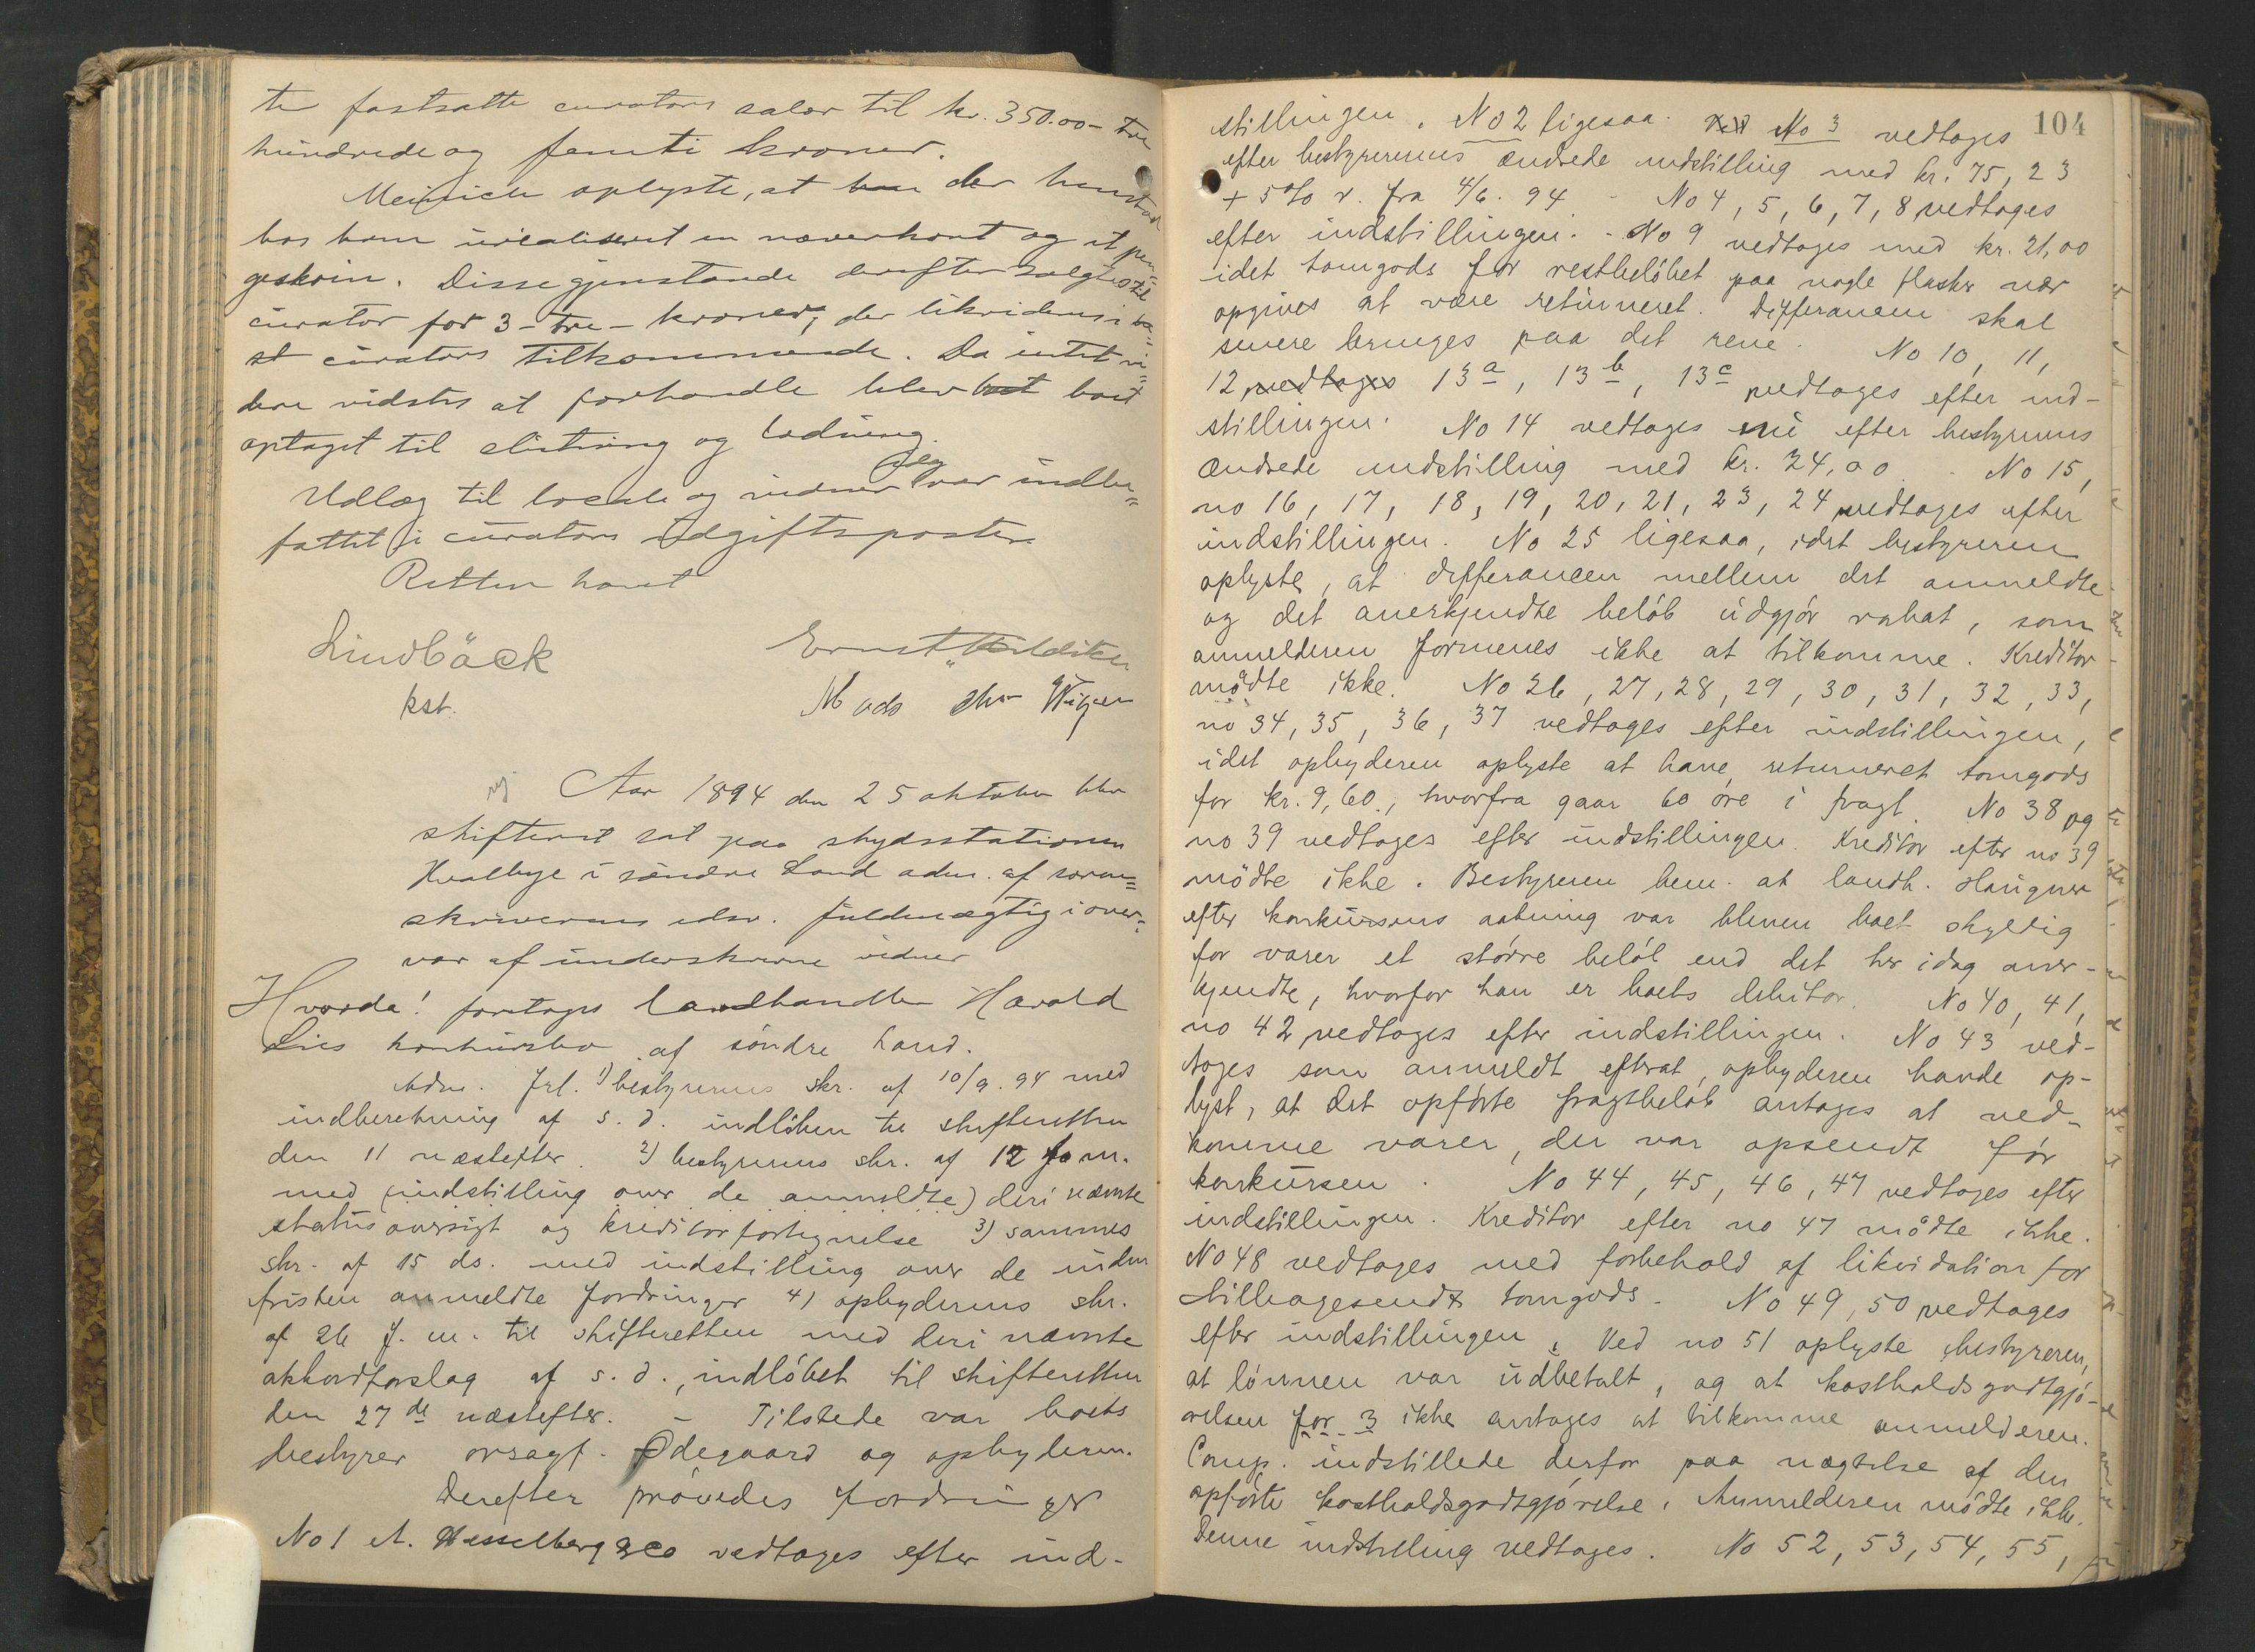 te fastsatte curators salær til kr. 350.00 - tre
hundrede og femti kroner.
Meinich oplyste, at der henstod
hos ham urealiseret en næverkont og et pen=
geskrin. Disse gjenstande derefter solgtes til
curator for 3 - tre - kroner, der likvideres i
curators tilkommende. Da intet vi=
dere vidstes at forhandle blev boet
optaget til slutning og lodning.
Udlæg til locale og vidner idag var indbe=
fattet i curators udgiftsposter
Retten hævet
Lindbäck Ernst
kst. Mads
Aar 1894 den 25 oktober blev
skifteret sat paa skydsstationen
Hvalbye i søndre Land adm. af soren=
skriverens edsv. fuldmægtig i over=
vær af underskrevne vidner
Hvorda! foretoges landhandler Harald
Lies konkursbo af søndre Land.
Adm. frl. 1) bestyrerens skr. af 10/9. 94 med
indberetning af s. d. indløben til skifteretten
den 11 næstefter. 2) bestyrerens skr. af 12 f. m.
med (indstilling over de anmeldte) deri nævnte
statusoversigt og kreditorfortegnelse 3) sammes
skr. af 15 ds. med indstilling over de inden
fristen anmeldte fordringer 4) opbyderens skr.
af 26 f. m. til skifteretten med deri nævnte
akkordforslag af s. d., indløbet til skifteretten
den 27de næstefter. - Tilstede var boets
bestyrer orsagf. Ødegaard og opbyderen.
Derefter prøvedes fordringer
No 1 A. Hesselberg & Co vedtages efter ind-
104
stillingen. No 2 ligesaa. No 3 vedtages
efter bestyrerens ændrede indstilling med kr. 75,23
+ 5% r. fra 4/6. 94 - No 4, 5, 6, 7, 8 vedtages
efter indstillingen. - No 9 vedtages med kr. 21,00
idet tomgods for restbeløbet paa nogle flasker nær
opgives at være returneret. Differancen skal
senere bringes paa det rene. No 10, 11,
12 vedtages 13a, 13b, 13c vedtages efter ind-
stillingen. No 14 vedtages efter bestyrerens
ændrede indstilling med kr. 24,00 - No 15,
no 16, 17, 18, 19, 20, 21, 23, 24 vedtages efter
indstillingen. No 25 ligesaa, idet bestyreren
oplyste, at differancen mellem det anmeldte
og det anerkjendte beløb udgjør rabat, som
anmelderen formenes ikke at tilkomme. Kreditor
mødte ikke. No 26, 27, 28, 29, 30, 31, 32, 33,
no 34, 35, 36, 37 vedtages efter indstillingen,
idet opbyderen oplyste at have returneret tomgods
for kr. 9,60., hvorfra gaar 60 øre i fragt. No 38 og
no 39 vedtages efter indstillingen. Kreditor efter no 39
mødte ikke. Bestyreren bem. at landh. Haugner
efter konkursens aabning var bleven boet skyldig
for varer et større beløb end det her idag aner-
kjendte, hvorfor han er boets debitor. No 40, 41,
no 42 vedtages efter indstillingen. No 43 ved-
tages som anmeldt efterat opbyderen havde op-
lyst, at det opførte fragtbeløb antages at ved-
komme varer, der var opsendt før
konkursen. No 44, 45, 46, 47 vedtages efter
indstillingen. Kreditor efter no 47 mødte ikke.
No 48 vedtages med forbehold af likvidation for
tilbagesendt tomgods. No 49, 50 vedtages
efter indstillingen. Ved no 51 oplyste bestyreren,
at lønnen var udbetalt, og at kostholdsgodtgjø-
relsen for 3 ikke antages at tilkomme anmelderen.
Comp. indstillede derfor paa nægtelse af den
opførte kostholdsgodtgjørelse. Anmelderen mødte ikke.
Denne indstilling vedtages. No 52, 53, 54, 55,